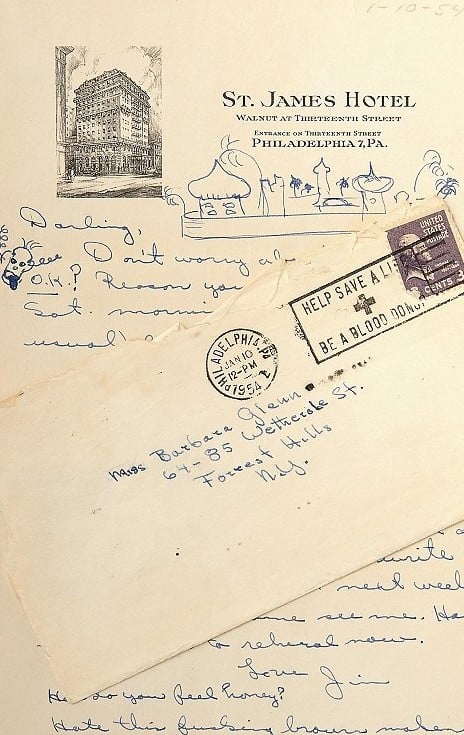 1-10-54
ST. JAMES HOTEL
WALNUT AT THIRTEENTH STREET
ENTRANCE ON THIRTEENTH STREET
PHILADELPHIA 7, PA.
Darling,
Don't worry
O.K.? Reason you
Sat. mornin
usual!
UNITED
STATES
POSTAGE
CENTS
HELP SAVE A LIFE
BE A BLOOD DONOR
PHILADELPHIA, PA.
JAN 10
12-PM
1954
Miss Barbara Glenn
64-85 Wetherole St.
Forrest Hills
N.Y.
write
next week
me see me. Ha
to rehersal now.
Love Jim
How do you feel honey?
Hate this fucking brown makeu